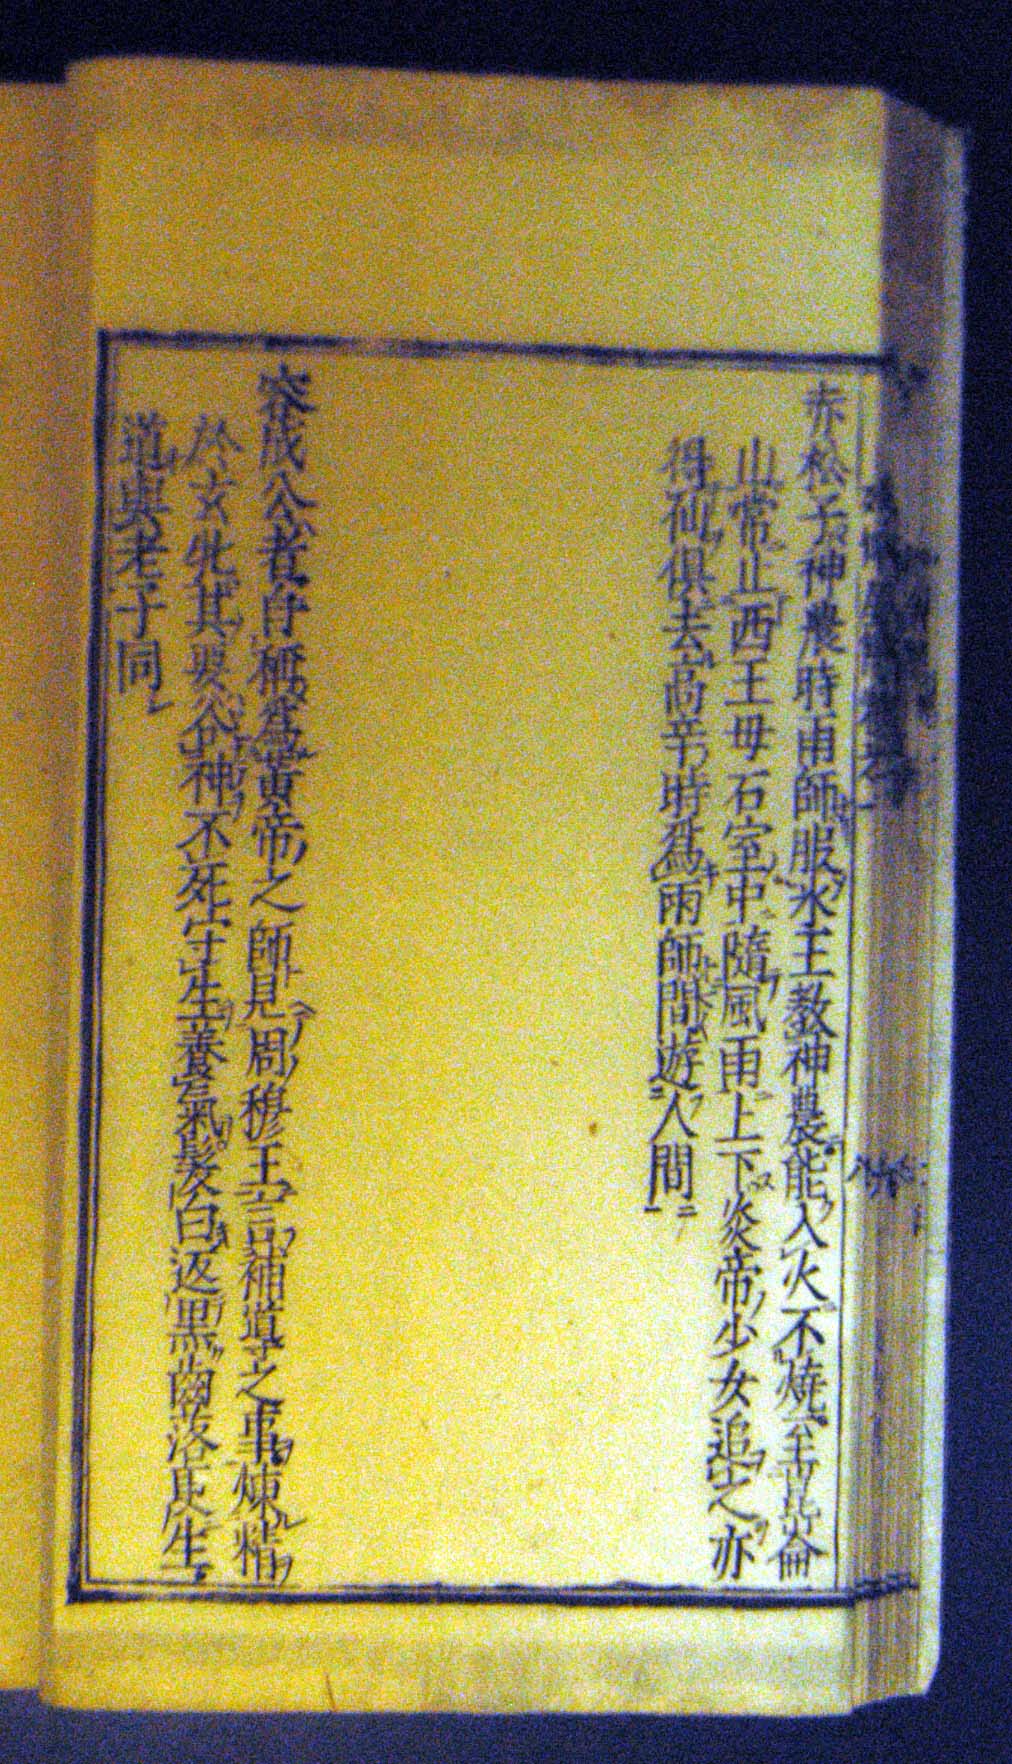 赤松子神農時雨師服水玉教神農能入火不燒至崑崙
山常止西王母石室中隨風雨上下炎帝少女追之亦
得仙俱去高辛時爲雨師間遊人間
容成公者自稱爲黃帝之師見周穆王言補導之事煉精
於玄牝其要谷神不死守生養氣髮白返黑齒落更生
道與老子同